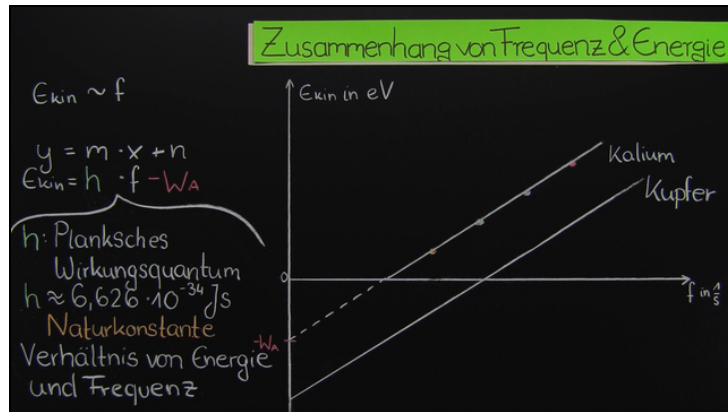 Zusammenhang von Frequenz & Energie
Ekin ~ f
y = m · x + n
Ekin = h · f - WA
h: Planksches
Wirkungsquantum
h ≈ 6,626 · 10^-34 Js
Naturkonstante
Verhältnis von Energie
und Frequenz
Ekin in eV
Kalium
Kupfer
0
f in 1/s
-WA